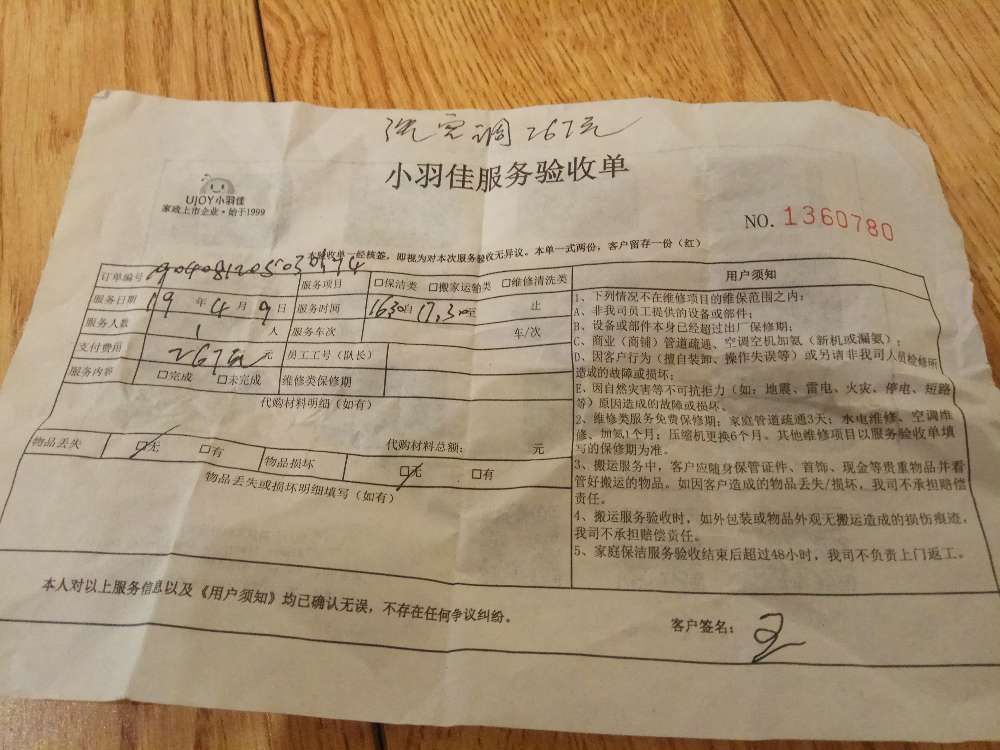 洗空调267元
小羽佳服务验收单
UJOY小羽佳
家政上市企业·始于1999
NO. 1360780
本验收单一经核签，即视为对本次服务验收无异议。本单一式两份，客户留存一份（红）
订单编号 服务项目 □保洁类 □搬家运输类 □维修清洗类
服务日期 19 年 4 月 9 日 服务时间 1630自 17,30至 止
服务人数 1 人 服务车次 车/次
支付费用 267元 元 员工工号（队长）
服务内容 □完成 □未完成 维修类保修期
代购材料明细（如有）
代购材料总额： 元
物品丢失 □无 □有 物品损坏 □无 □有
物品丢失或损坏明细填写（如有）
用户须知
1、下列情况不在维修项目的维保范围之内：
A、非我司员工提供的设备或部件；
B、设备或部件本身已经超过出厂保修期；
C、商业（商铺）管道疏通、空调空机加氨（新机或漏氨）；
D、因客户行为（擅自装卸、操作失误等）或另请非我司人员检修所
造成的故障或损坏；
E、因自然灾害等不可抗拒力（如：地震、雷电、火灾、停电、短路
等）原因造成的故障或损坏。
2、维修类服务免费保修期：家庭管道疏通3天；水电维修、空调维
修、加氨1个月；压缩机更换6个月。其他维修项目以服务验收单填
写的保修期为准。
3、搬运服务中，客户应随身保管证件、首饰、现金等贵重物品并看
管好搬运的物品。如因客户造成的物品丢失/损坏，我司不承担赔偿
责任。
4、搬运服务验收时，如外包装或物品外观无搬运造成的损伤痕迹，
我司不承担赔偿责任。
5、家庭保洁服务验收结束后超过48小时，我司不负责上门返工。
本人对以上服务信息以及《用户须知》均已确认无误，不存在任何争议纠纷。
客户签名：